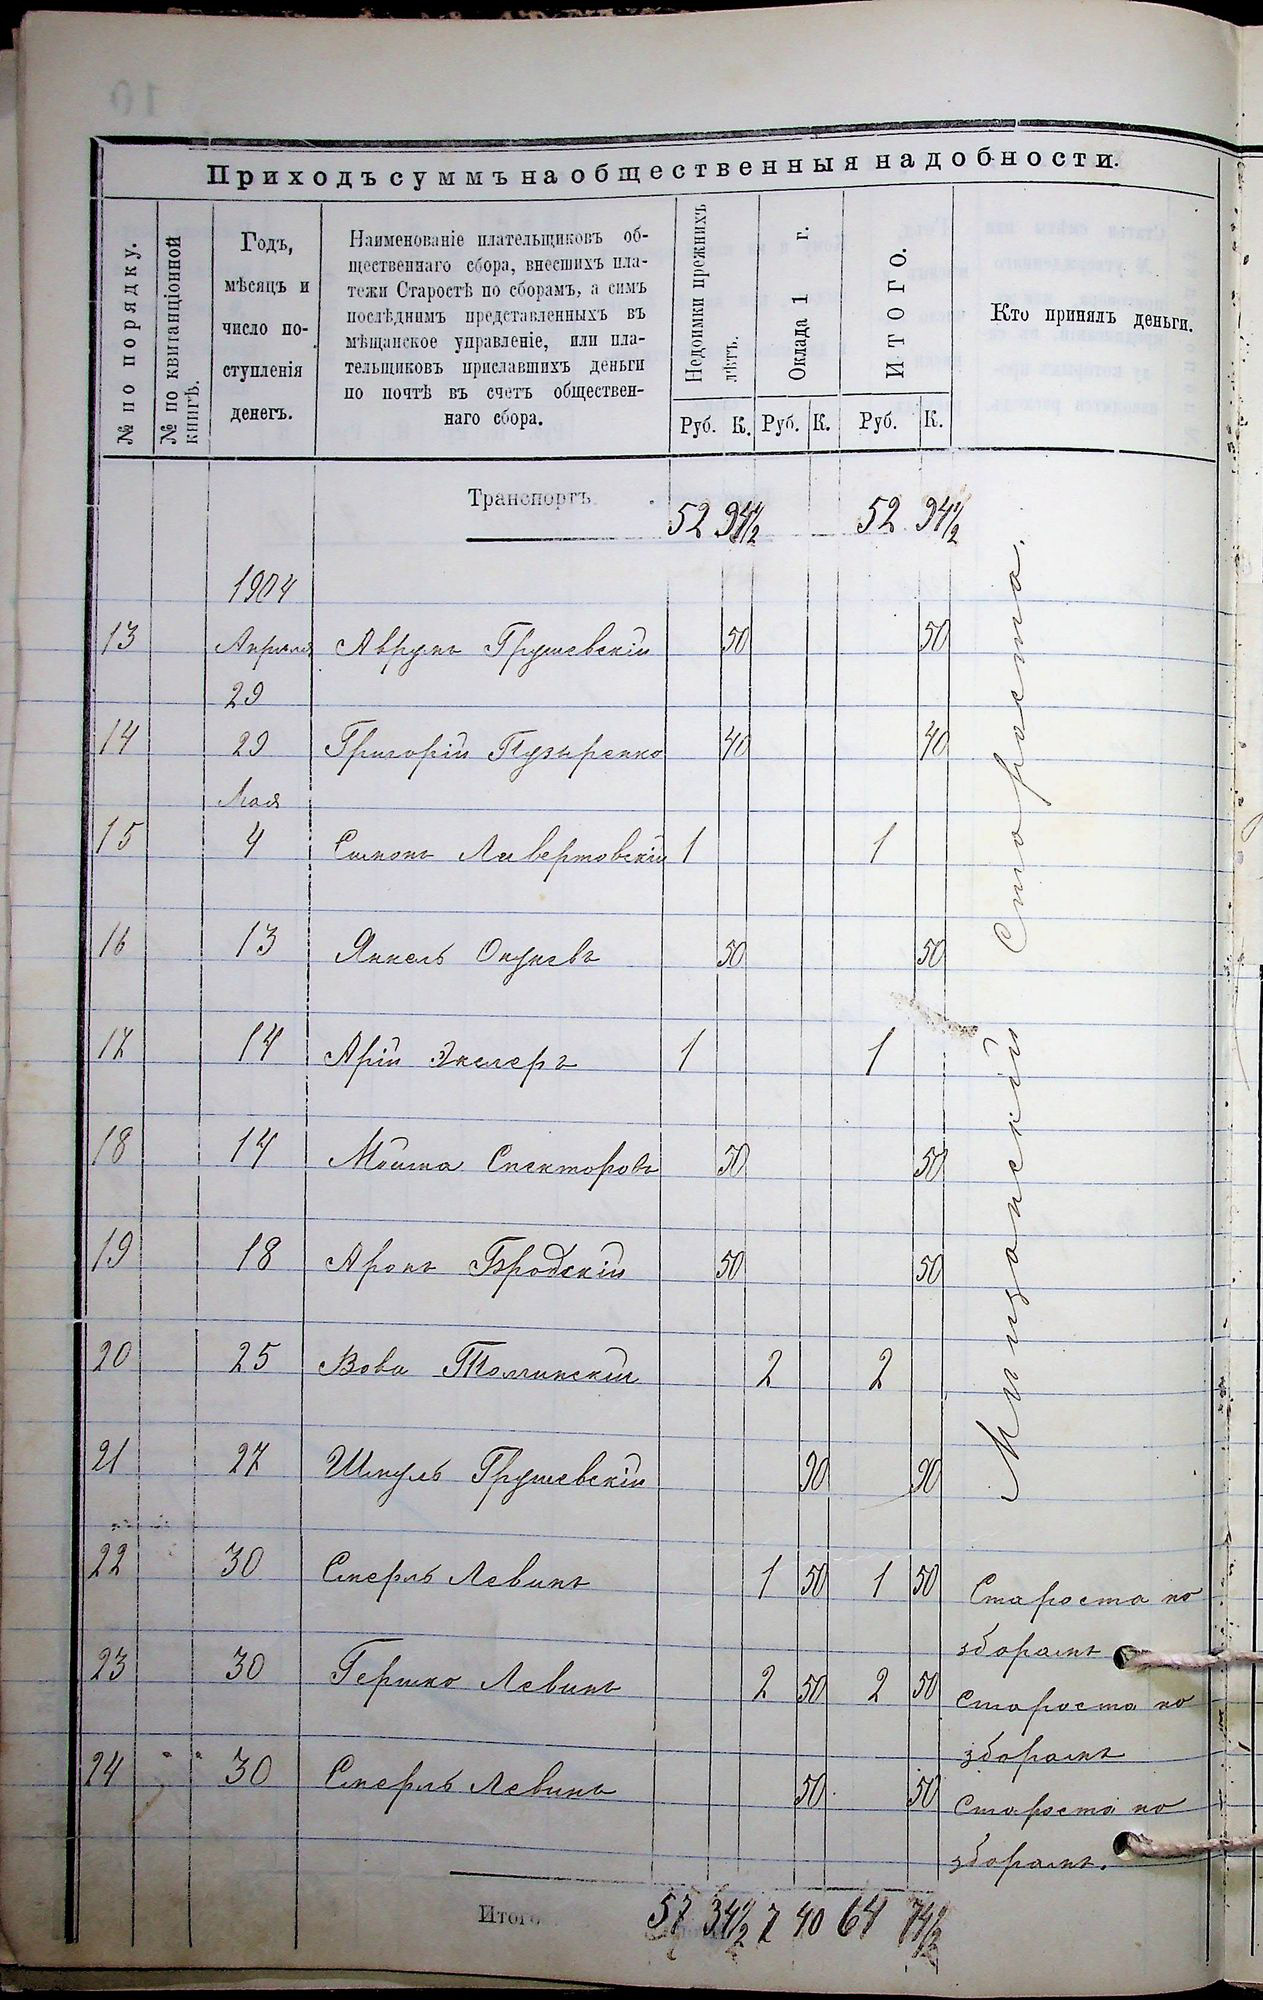 Приходъ суммъ на общественныя надобности.
№ по порядку.
№ по квитанціонной
книгѣ.
Годъ,
мѣсяцъ и
число по-
ступленія
денегъ.
Наименованіе плательщиковъ об-
щественнаго сбора, внесшихъ пла-
тежи Старостѣ по сборамъ, а симъ
послѣднимъ представленныхъ въ
мѣщанское управленіе, или пла-
тельщиковъ приславшихъ деньги
по почтѣ въ счетъ обществен-
наго сбора.
Недоимки прежнихъ
лѣтъ.
Оклада 1 г.
Итого.
Кто принялъ деньги.
Руб. К. Руб. К. Руб. К.
Транспортъ 52 94½ 52 94½
1904
13 Апрѣля Аврумъ Грушевскій 50 50
29
14 29 Григорій Пузыренко 40 40
Мая
15 4 Симонъ Ливертовскій 1 1
16 13 Янкель Окуневъ 50 50
17 14 Арій Экслеръ 1 1
18 14 Мошка Спекторовъ 50 50
19 18 Аронъ Бродскій 50 50
20 25 Вова Толчинскій 2 2
21 27 Шмуль Грушевскій 90 90
Мищанскій Староста.
22 30 Смерль Левинъ 1 50 1 50 Староста по
зборамъ
23 30 Гершко Левинъ 2 50 2 50 Староста по
зборамъ
24 30 Смерль Левинъ 50 50 Староста по
зборамъ.
Итого 57 34½ 7 40 64 74½